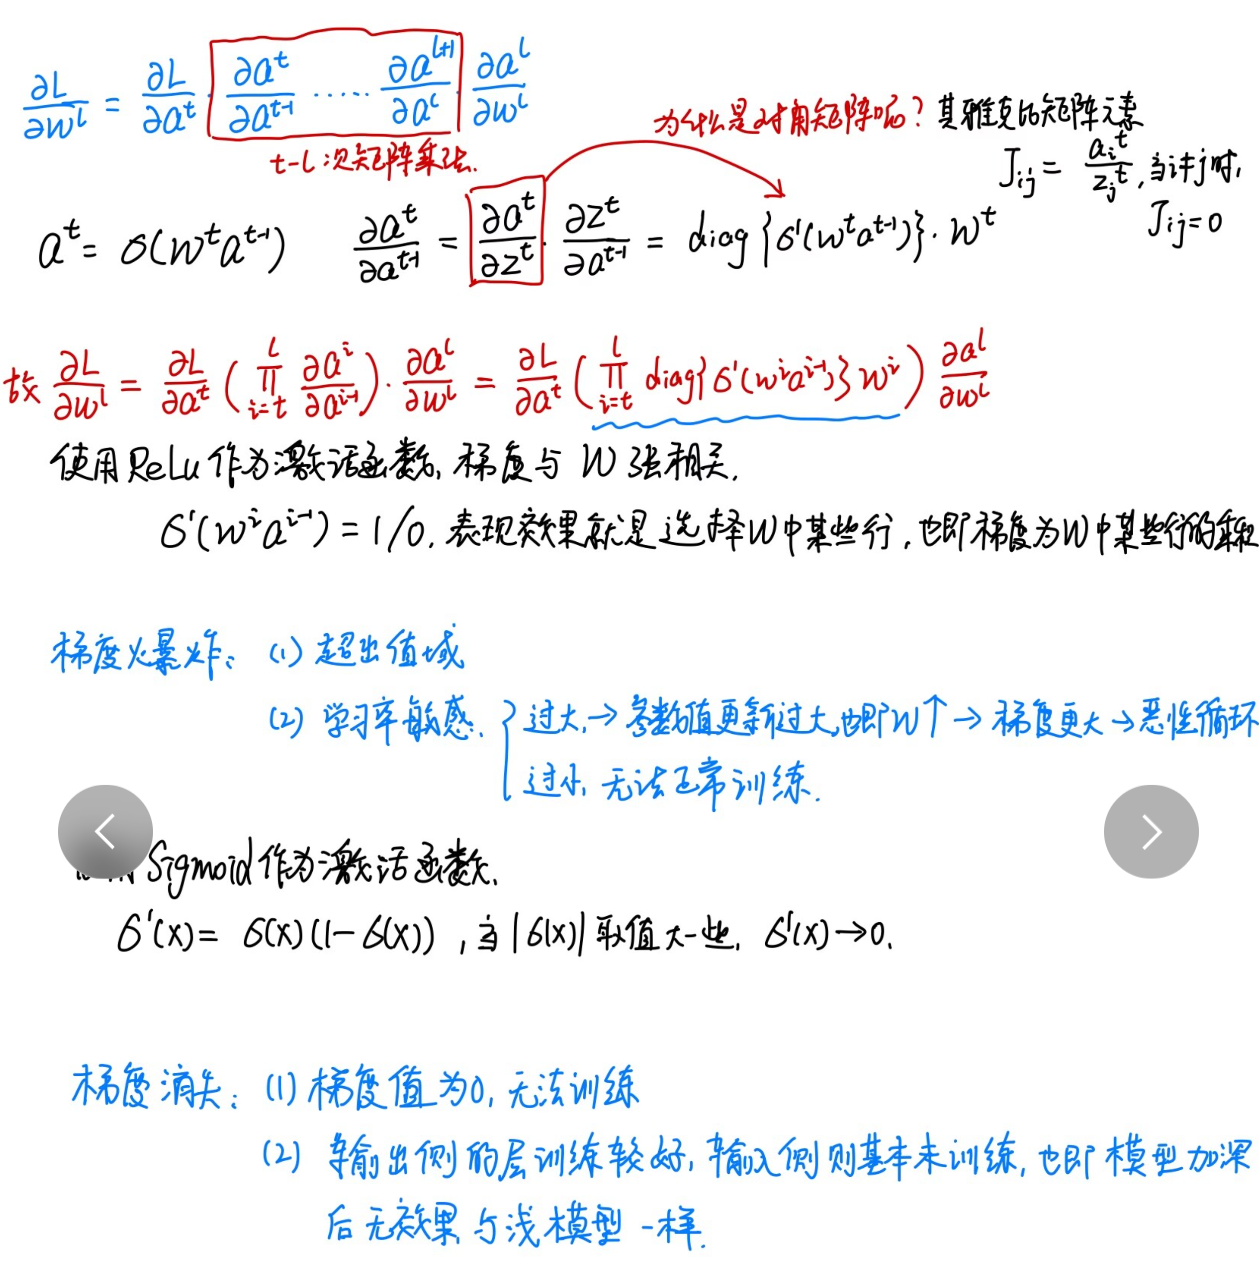 ∂L/∂w^l = ∂L/∂a^t · ∂a^t/∂a^{t-1} ····· ∂a^{l+1}/∂a^l · ∂a^l/∂w^l
t-l次矩阵乘法.
为什么是对角矩阵呢? 其雅克比矩阵元素
J_{ij} = a_i^t/z_j^t, 当i≠j时,
J_{ij}=0
a^t = σ(w^t a^{t-1}) ∂a^t/∂a^{t-1} = ∂a^t/∂z^t · ∂z^t/∂a^{t-1} = diag{σ'(w^t a^{t-1})}·w^t
故 ∂L/∂w^l = ∂L/∂a^t (∏_{i=t}^{l} ∂a^i/∂a^{i-1}) · ∂a^l/∂w^l = ∂L/∂a^t (∏_{i=t}^{l} diag{σ'(w^i a^{i-1})} w^i) ∂a^l/∂w^l
使用ReLu作为激活函数, 梯度与W强相关.
σ'(w^i a^{i-1}) = 1/0. 表现效果就是选择W中某些行, 也即梯度为W中某些行的乘积
梯度爆炸: (1) 超出值域
(2) 学习率敏感. { 过大, → 参数值更新过大,也即W↑ → 梯度更大 → 恶性循环
过小, 无法正常训练.
Sigmoid作为激活函数.
σ'(x) = σ(x)(1-σ(x)), 当|σ(x)|取值大一些, σ'(x)→0.
梯度消失: (1) 梯度值为0, 无法训练
(2) 输出侧的层训练较好, 输入侧则基本未训练, 也即模型加深
后无效果, 与浅模型一样.